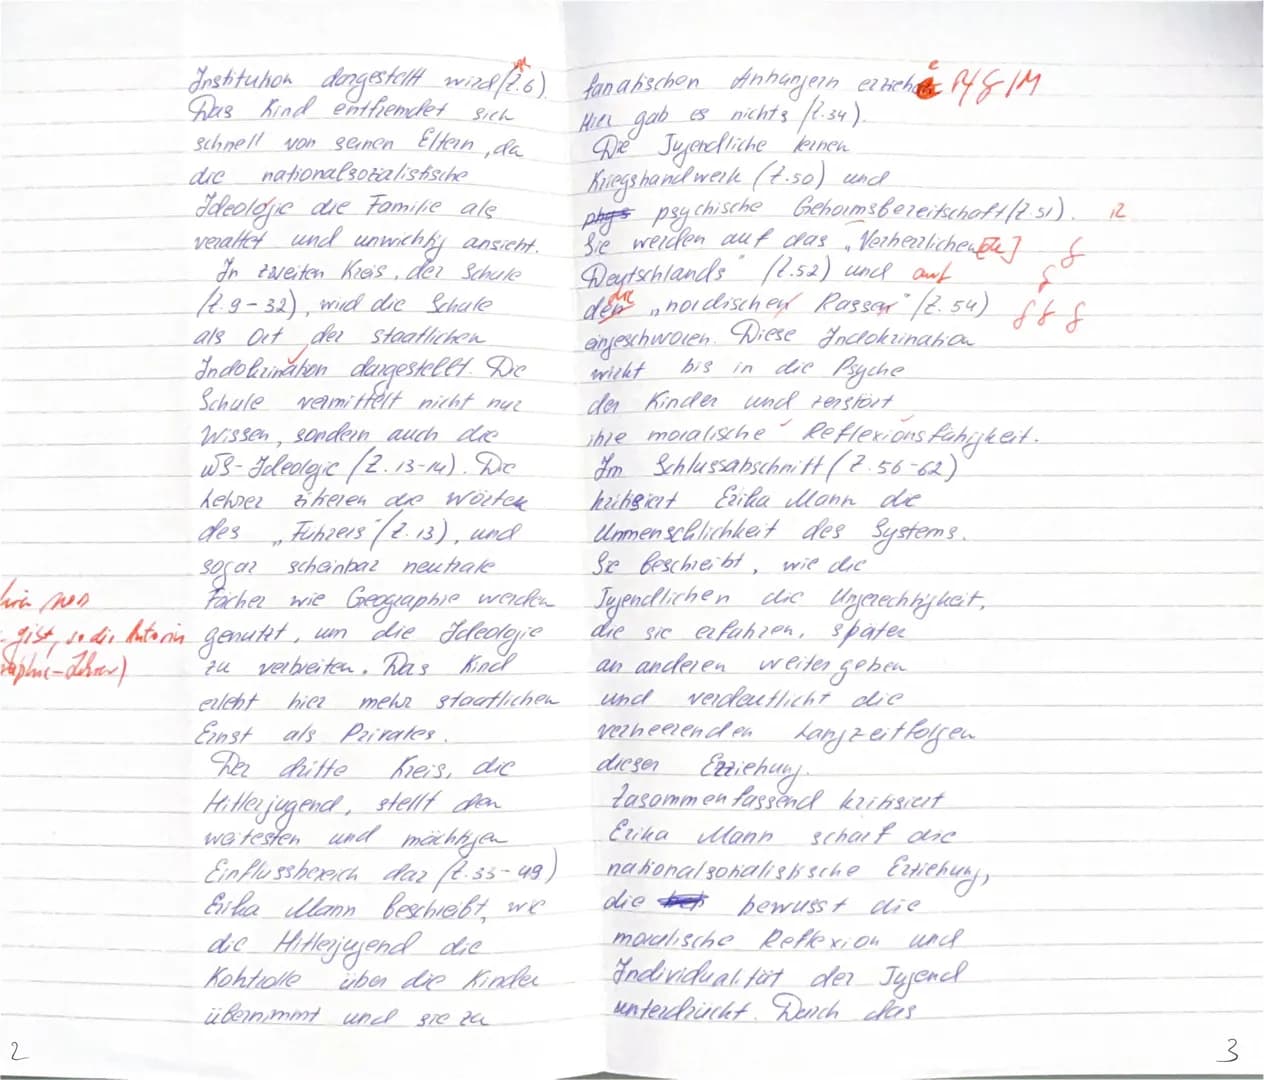 Institution dargestellt wird (Z.6).
Das Kind entfremdet sich
schnell von seinen Eltern, da
die nationalsozialistische
Ideologie die Familie als
veraltet und unwichtig ansieht.
In zweiten Kreis, der Schule
(Z.9-32), wird die Schule
als Ort der staatlichen
Indoktrination dargestellt. Die
Schule vermittelt nicht nur
Wissen, sondern auch die
NS-Ideologie (Z.13-14). Die
Lehrer zitieren die Worten
des „Führers" (Z.13), und
sogar scheinbar neutrale
Fächer wie Geographie werden
genutzt, um die Ideologie
zu verbreiten. Das Kind
erlebt hier mehr staatlichen
Ernst als Privates.
Der dritte Kreis, die
Hitlerjugend, stellt den
weitesten und mächtigen
Einflussbereich dar (Z.33-49)
Erika Mann beschreibt, wie
die Hitlerjugend die
Kontrolle über die Kinder
übernimmt und sie zu
gist, so die Autorin
raphie-Lehrer)
2
fanatischen Anhängern erziehe R/G/M
Hier gab es nichts (Z.34).
Die Jugendliche lernen
Kriegshandwerk (Z.50) und
phys psychische Gehormsbereitschaft (Z.51). R
Sie werden auf das „Verherrlichen [de]
Deutschlands" (Z.52) und auf
den die „nordischen Rassen" (Z.54)
eingeschworen. Diese Indoktrination
wirkt bis in die Psyche
der Kinder und zerstört
ihre moralische Reflexionsfähigkeit.
Im Schlussabschnitt (Z.56-62)
kritisiert Erika Mann die
Unmenschlichkeit des Systems.
Sie beschreibt, wie die
Jugendlichen die Ungerechtigkeit,
die sie erfahren, später
an anderen weitergeben
und verdeutlicht die
verheerenden Langzeitfolgen
dieser Erziehung.
Zusammenfassend kritisiert
Erika Mann scharf die
nationalsozialistische Erziehung,
die bewusst die
moralische Reflexion und
Individualität der Jugend
unterdrückt. Durch das
3